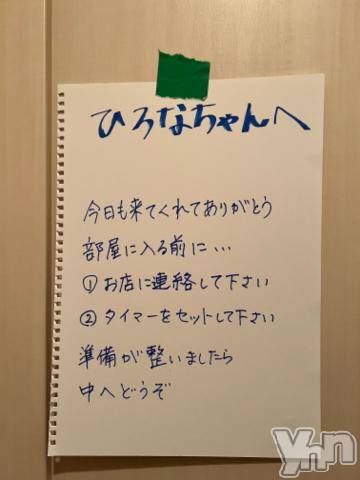 ひろなちゃんへ
今日も来てくれてありがとう
部屋に入る前に…
①お店に連絡して下さい
②タイマーをセットして下さい
準備が整いましたら
中へどうぞ